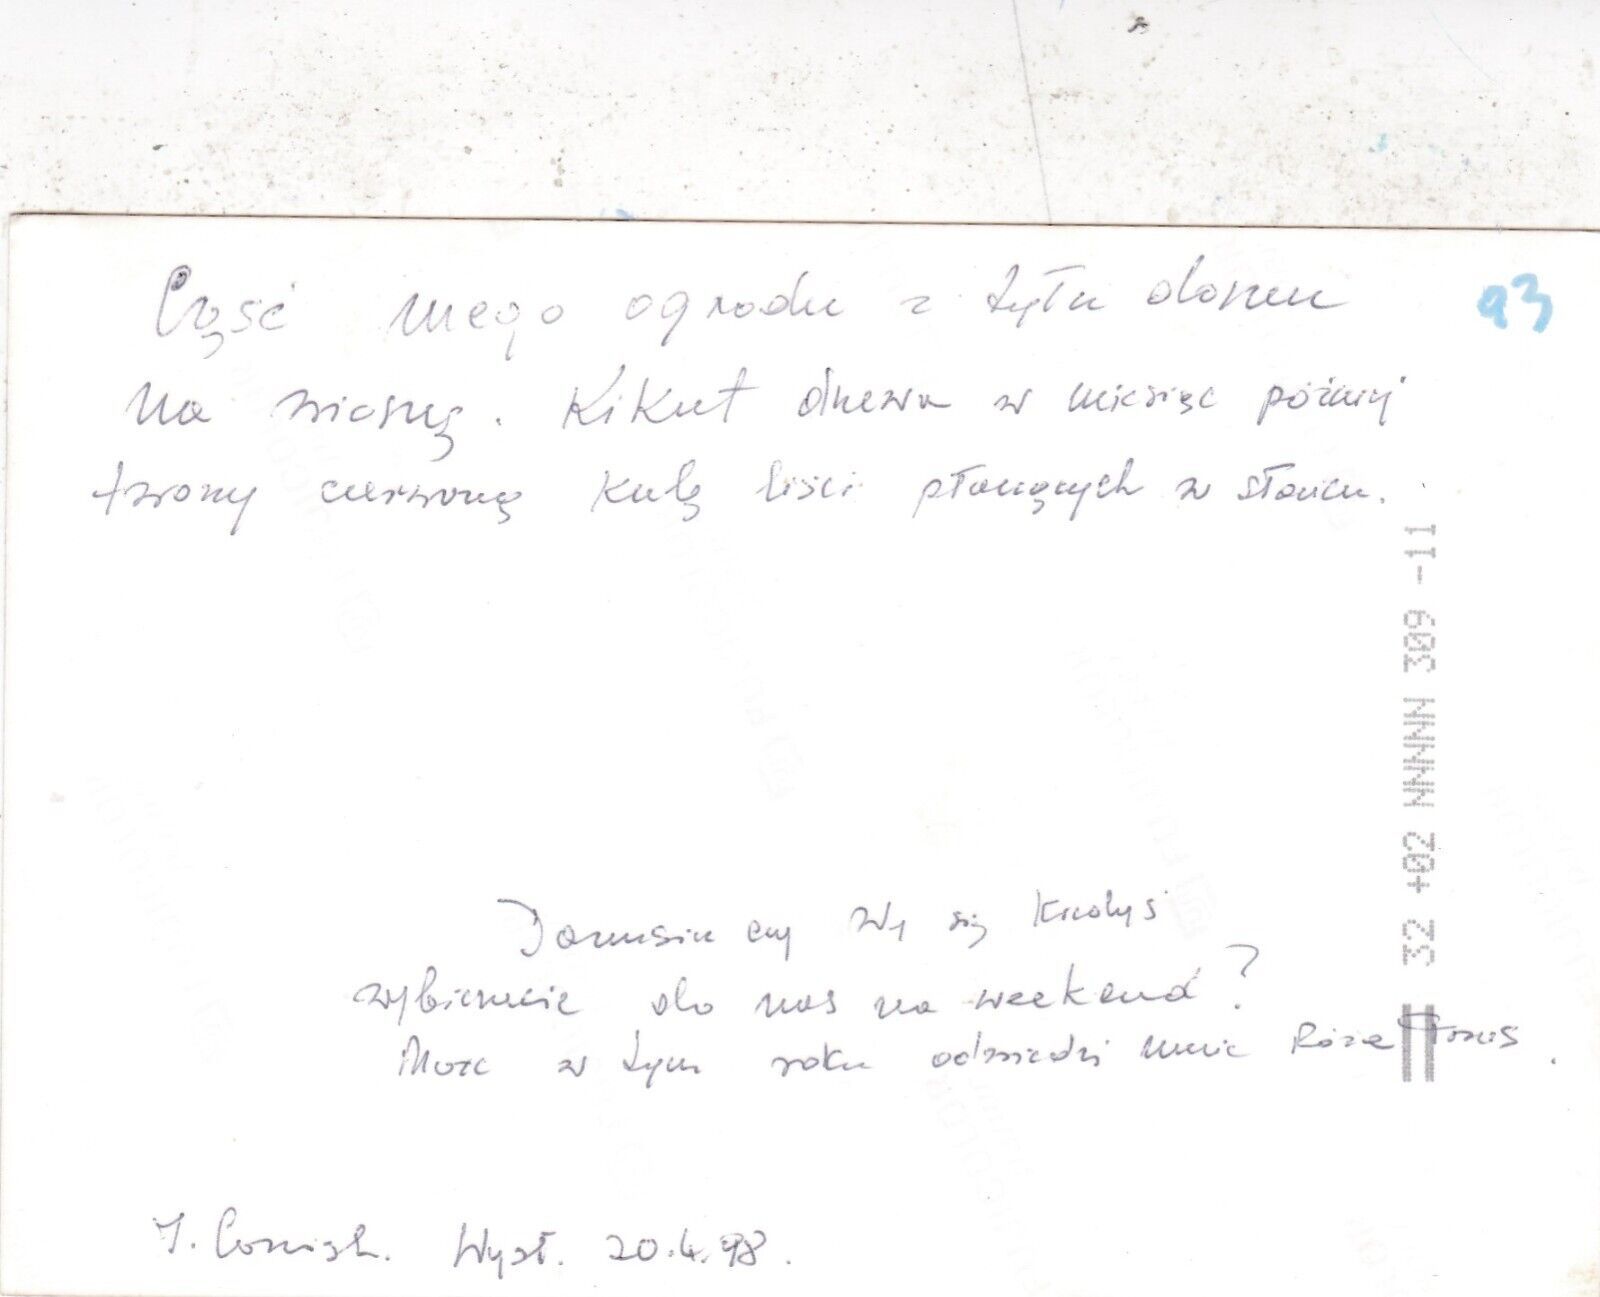 Część mego ogrodu z tyłu domu
93
na wiosnę. Kikut drzewa w miesiąc później
tworzy czerwoną kulę liści płonących w słońcu.
32 +02 NNNNN 309 -11
Danusiu czy Wy się kiedyś
wybierzecie do nas na weekend?
Może w tym roku odwiedzi mnie Róża
J. Cornish. Wysł. 20.4.98.